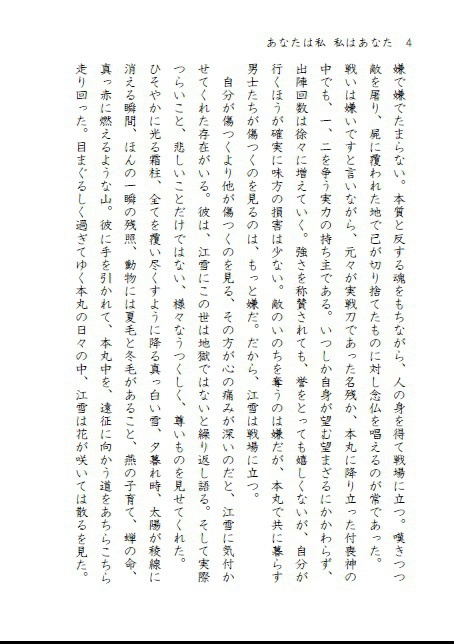 あなたは私 私はあなた 4
嫌で嫌でたまらない。本質と反する魂をもちながら、人の身を得て戦場に立つ。嘆きつつ
敵を屠り、屍に覆われた地で己が切り捨てたものに対し念仏を唱えるのが常であった。
戦いは嫌いですと言いながら、元々が実戦刀であった名残か、本丸に降り立った付喪神の
中でも、一、二を争う実力の持ち主である。いつしか自身が望む望まざるにかかわらず、
出陣回数は徐々に増えていく。強さを称賛されても、誉をとっても嬉しくないが、自分が
行くほうが確実に味方の損害は少ない。敵のいのちを奪うのは嫌だが、本丸で共に暮らす
男士たちが傷つくのを見るのは、もっと嫌だ。だから、江雪は戦場に立つ。
自分が傷つくより他が傷つくのを見る、その方が心の痛みが深いのだと、江雪に気付か
せてくれた存在がいる。彼は、江雪にこの世は地獄ではないと繰り返し語る。そして実際
つらいこと、悲しいことだけではない、様々なうつくしく、尊いものを見せてくれた。
ひそやかに光る霜柱、全てを覆い尽くすように降る真っ白い雪、夕暮れ時、太陽が稜線に
消える瞬間、ほんの一瞬の残照、動物には夏毛と冬毛があること、燕の子育て、蝉の命、
真っ赤に燃えるような山。彼に手を引かれて、本丸中を、遠征に向かう道をあちらこちら
走り回った。目まぐるしく過ぎてゆく本丸の日々の中、江雪は花が咲いては散るを見た。